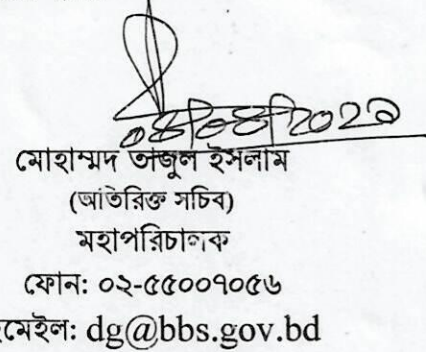 ০৪/০৪/২০২১
মোহাম্মদ তাজুল ইসলাম
(অতিরিক্ত সচিব)
মহাপরিচালক
ফোন: ০২-৫৫০০৭০৫৬
ইমেইল: dg@bbs.gov.bd